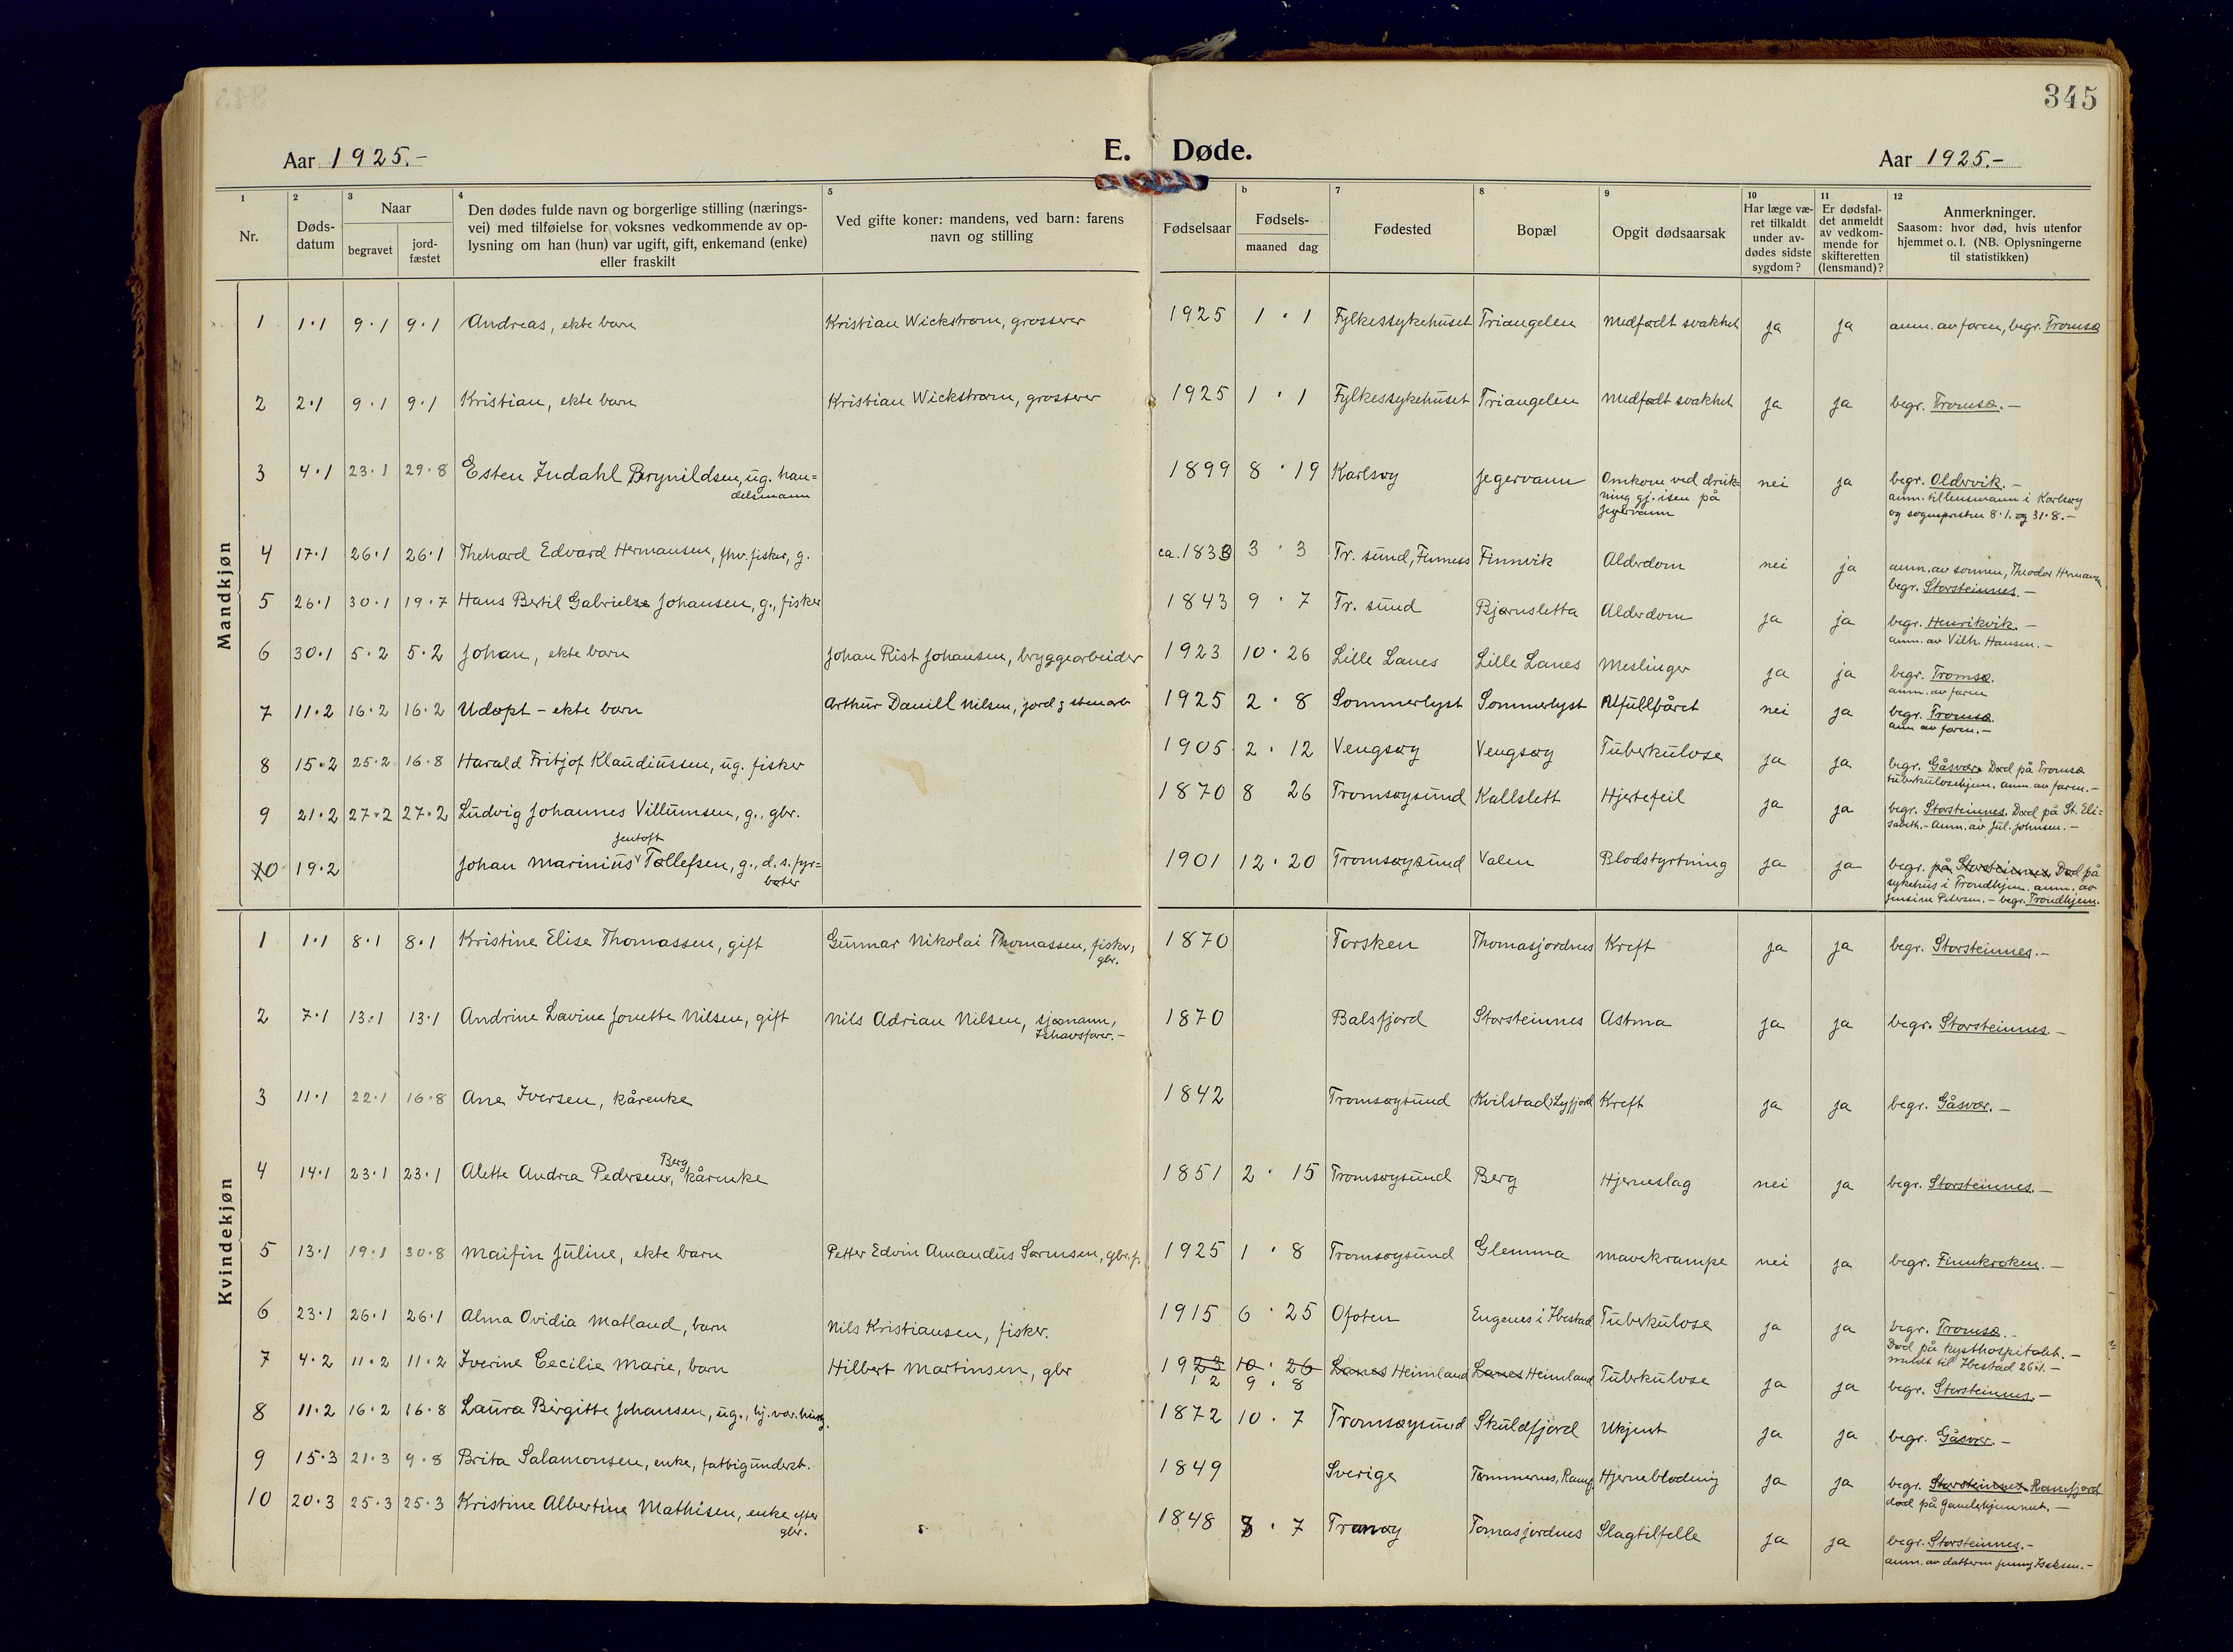 345
Aar 1925.- E. Døde. Aar 1925.-
1 2 3 4 5 6 7 8 9 10 11 12
Nr. Døds-datum Naar begravet jord-fæstet Den dødes fulde navn og borgerlige stilling (nærings-vei) med tilføielse for voksnes vedkommende av op-lysning om han (hun) var ugift, gift, enkemand (enke) eller fraskilt Ved gifte koner: mandens, ved barn: farens navn og stilling Fødselsaar Fødsels- maaned dag Fødested Bopæl Opgit dødsaarsak Har læge væ-ret tilkaldt under av-dødes sidste sygdom? Er dødsfal-det anmeldt av vedkom-mende for skifteretten (lensmand)? Anmerkninger. Saasom: hvor død, hvis utenfor hjemmet o. l. (NB. Oplysningerne til statistikken)
Mandkjøn
1 1·1 9·1 9·1 Andreas, ekte barn Kristian Wickstrøm, grosserer 1925 1·1 Fylkessykehuset Triangelen Medfødt svakhet ja ja anm. av faren, begr. Tromsø
2 2·1 9·1 9·1 Kristian, ekte barn Kristian Wickstrøm, grosserer 1925 1·1 Fylkessykehuset Triangelen Medfødt svakhet ja ja begr. Tromsø.-
3 4·1 23·1 29·8 Esten Indahl Brynildsen, ug. han=delsmann 1899 8·19 Karlsøy Jegervann Omkom ved druk=ning gj. isen på Jegervann nei ja begr. Oldervik.-
anm. til lensmann i Karlsøy
og sognepresten 8·1. og 31·8.-
4 17·1 26·1 26·1 Thehard Edvard Hermansen, fhv. fisker, g. ca. 1833 3·3 Tr. sund, Finnes Finnvik Alderdom nei ja anm. av sønnen, Theodor Hermansen
begr. Storsteinnes.-
5 26·1 30·1 19·7 Hans Bertil Gabriel Johansen, g., fisker 1843 9·7 Tr. sund Bjørnsletta Alderdom ja ja begr. Henrikvik.-
anm. av Vilh. Hansen.-
6 30·1 5·2 5·2 Johan, ekte barn Johan Rist Johansen, bryggearbeider 1923 10·26 Lille Lanes Lille Lanes Meslinger ja ja begr. Tromsø.
anm. av faren
7 11·2 16·2 16·2 Udøpt - ekte barn Arthur Daniell Nilsen, jord & stenarb 1925 2·8 Sommerlyst Sommerlyst Alfullbåret nei ja begr. Tromsø.
anm av faren.-
8 15·2 25·2 16·8 Harald Fritjof Klaudiussen, ug. fisker 1905 2·12 Vengsøy Vengsøy Tuberkulose ja ja begr. Gåsvær. Død på Tromsø
tuberkulosehjem. anm. av faren.-
9 21·2 27·2 27·2 Ludvig Johannes Villumsen, g., gbr. 1870 8 26 Tromsøysund Kallslett Hjertefeil ja ja begr. Storsteinnes. Død på St. Eli=
sabeth.- Anm. av Jul. Johnsen.-
10 19·2 Johan Marinius Jentoft Tollefsen, g., d.s. fyr=bøter 1901 12·20 Tromsøysund Valen Blodstyrtning ja ja begr. på Storsteinnes Død på
sykehus i Trondhjem. anm. av
Jensine Petersen.- begr. Trondhjem.
Kvindekjøn
1 1·1 8·1 8·1 Kristine Elise Thomassen, gift Gunnar Nikolai Thomassen, fisker, gbr. 1870 Torsken Thomasjordnes Kreft ja ja begr. Storsteinnes.-
2 7·1 13·1 13·1 Andrine Lavine Jonette Nilsen, gift Nils Adrian Nilsen, sjømann, Ishavsfarer.- 1870 Balsfjord Storsteinnes Astma ja ja begr. Storsteinnes.-
3 11·1 22·1 16·8 Ane Iversen, kårenke 1842 Tromsøysund (Kvilstad) Lyfjord Kreft ja ja begr. Gåsvær.-
4 14·1 23·1 23·1 Alette Andrea Pedersen Berg, kårenke 1851 2·15 Tromsøysund Berg Hjerneslag nei ja begr. Storsteinnes.-
5 13·1 19·1 30·8 Maifin Juline, ekte barn Petter Edvin Amandus Sørensen, gbr. f. 1925 1·8 Tromsøysund Glemma Mavekrampe nei ja begr. Finnkroken.-
6 23·1 26·1 26·1 Alma Ovidia Matland, barn Nils Kristiansen, fisker. 1915 6·25 Ofoten Engenes i Ibestad Tuberkulose ja ja begr. Tromsø.-
Død på kysthospitalet.-
meldt til Ibestad 26·1.-
7 4·2 11·2 11·2 Iverine Cecilie Marie, barn Hilbert Martinsen, gbr 1923 12 10·26 9·8 Lanes Heimland Lanes Heimland Tuberkulose ja ja begr. Storsteinnes.-
8 11·2 16·2 16·8 Laura Birgitte Johansen, ug., hj. vær. 1872 10·7 Tromsøysund Skuldfjord Ukjent ja ja begr. Gåsvær.-
9 15·3 21·3 9·8 Brita Salamonsen, enke, fattigunderst. 1849 Sverige Tømmernes, Ramf. Hjerneblødning ja ja begr. Storsteinnes. Ramfjord
død på gamlehjemmet.-
10 20·3 25·3 25·3 Kristine Albertine Mathisen, enke efter gbr. 1848 3·7 Tranøy Tomasjordnes Slagtilfelle ja ja begr. Storsteinnes.-
anm. av datteren Jenny Isaksen.-